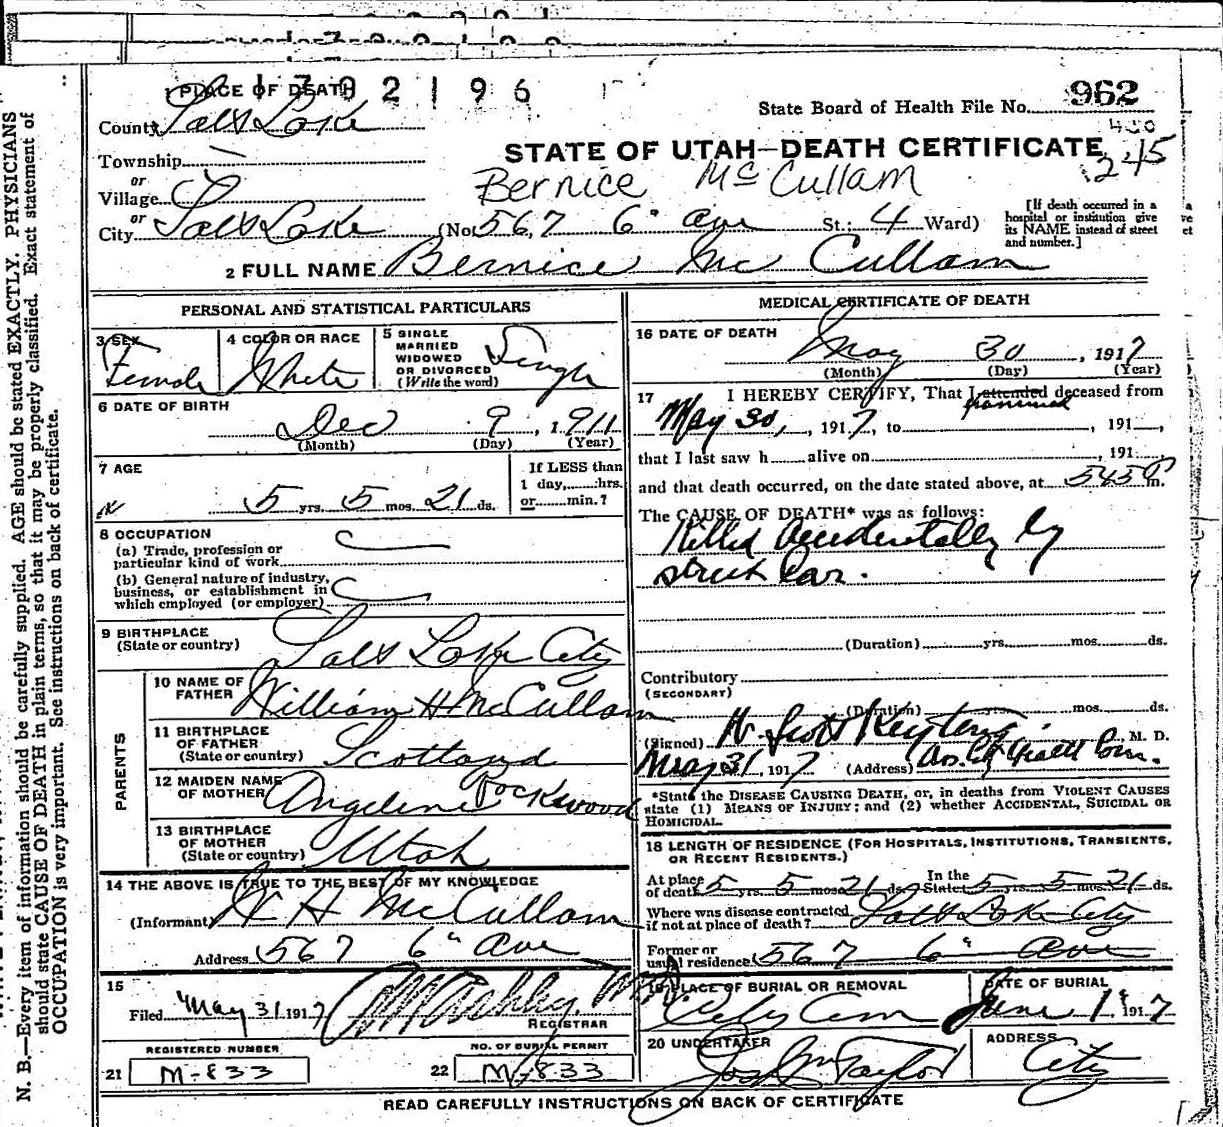 1 PLACE OF DEATH
1702196
State Board of Health File No. 962
County Salt Lake
Township —
STATE OF UTAH—DEATH CERTIFICATE
245
or
Village
Bernice McCullam
or
City Salt Lake (No. 567 6" Ave St.; 4 Ward)
[If death occurred in a hospital or institution give its NAME instead of street and number.]
2 FULL NAME Bernice McCullam
PERSONAL AND STATISTICAL PARTICULARS
3 SEX Female
4 COLOR OR RACE White
5 SINGLE MARRIED WIDOWED OR DIVORCED (Write the word) Single
6 DATE OF BIRTH
Dec 9, 1911
(Month) (Day) (Year)
7 AGE
5 yrs. 5 mos. 21 ds.
If LESS than 1 day,......hrs. or......min.?
8 OCCUPATION
(a) Trade, profession or particular kind of work
(b) General nature of industry, business, or establishment in which employed (or employer)
9 BIRTHPLACE (State or country) Salt Lake City
PARENTS
10 NAME OF FATHER William H McCullam
11 BIRTHPLACE OF FATHER (State or country) Scotland
12 MAIDEN NAME OF MOTHER Angeline Rockwood
13 BIRTHPLACE OF MOTHER (State or country) Utah
14 THE ABOVE IS TRUE TO THE BEST OF MY KNOWLEDGE
(Informant) W H McCullam
Address 567 6" Ave
15
Filed May 31 1917
REGISTRAR
REGISTERED NUMBER
21 M-833
NO. OF BURIAL PERMIT
22 M-833
MEDICAL CERTIFICATE OF DEATH
16 DATE OF DEATH
May 30, 1917
(Month) (Day) (Year)
17 I HEREBY CERTIFY, That I attended deceased from
May 30, 1917, to , 191 ,
that I last saw h alive on , 191
and that death occurred, on the date stated above, at 545 P m.
The CAUSE OF DEATH* was as follows:
Killed Accidentally by
street Car.
(Duration) yrs. mos. ds.
Contributory (SECONDARY)
(Duration) yrs. mos. ds.
(Signed) , M. D.
May 31, 1917 (Address)
*State the DISEASE CAUSING DEATH, or, in deaths from VIOLENT CAUSES state (1) MEANS OF INJURY; and (2) whether ACCIDENTAL, SUICIDAL OR HOMICIDAL.
18 LENGTH OF RESIDENCE (FOR HOSPITALS, INSTITUTIONS, TRANSIENTS, OR RECENT RESIDENTS.)
At place of death 5 yrs. 5 mos. 21 ds. In the State 5 yrs. 5 mos. 21 ds.
Where was disease contracted if not at place of death? Salt Lake City
Former or usual residence 567 6" Ave
19 PLACE OF BURIAL OR REMOVAL City Cem
DATE OF BURIAL June 1st 1917
20 UNDERTAKER Jos Wm Taylor
ADDRESS City
READ CAREFULLY INSTRUCTIONS ON BACK OF CERTIFICATE
N. B.—Every item of information should be carefully supplied. AGE should be stated EXACTLY. PHYSICIANS
should state CAUSE OF DEATH in plain terms, so that it may be properly classified. Exact statement of
OCCUPATION is very important. See instructions on back of certificate.